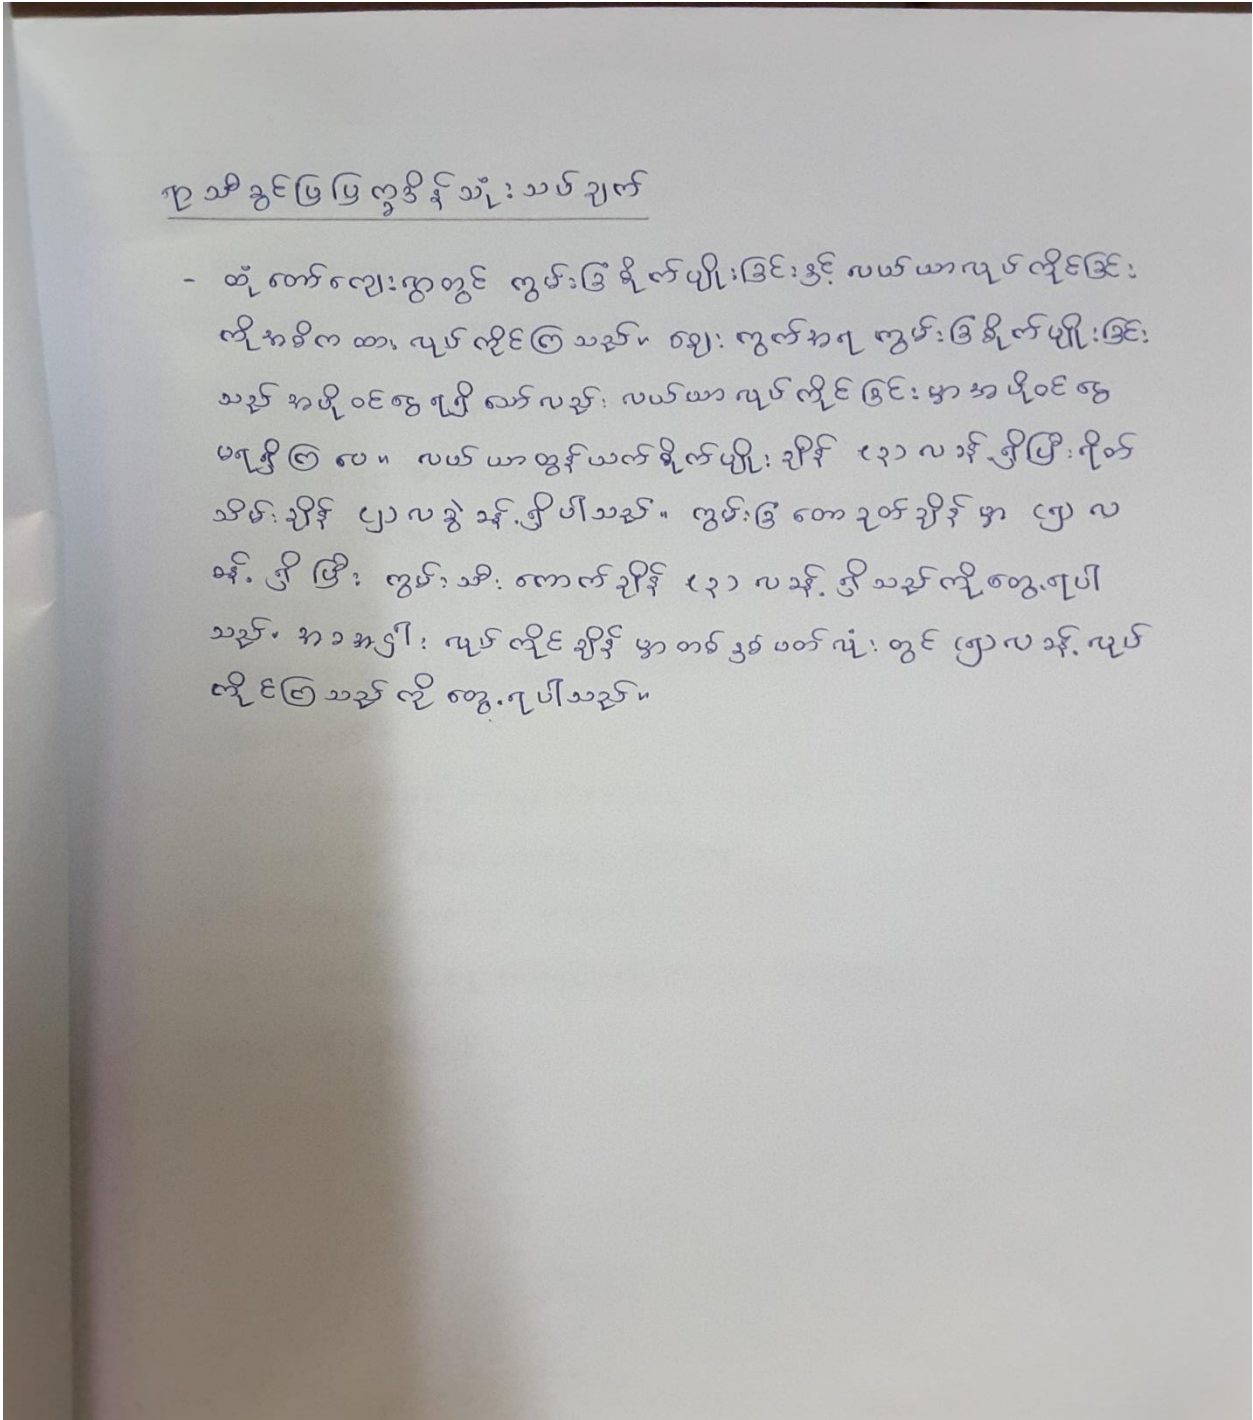 ရာသီခွင်ပြပြက္ခဒိန်သုံးသပ်ချက်
- ထုံတော်ကျေးရွာတွင် ကွမ်းခြံစိုက်ပျိုးခြင်းနှင့် လယ်ယာလုပ်ကိုင်ခြင်း
ကိုအဓိကထား လုပ်ကိုင်ကြသည်။ ဈေးကွက်အရ ကွမ်းခြံစိုက်ပျိုးခြင်း
သည် အပိုဝင်ငွေရရှိသော်လည်း လယ်ယာလုပ်ကိုင်ခြင်းမှာအပိုဝင်ငွေ
မရရှိကြပေ။ လယ်ယာထွန်ယက်စိုက်ပျိုးချိန် (၃)လခန့်ရှိပြီးရိတ်
သိမ်းချိန် (၂)လခွဲခန့်ရှိပါသည်။ ကွမ်းခြံတောခုတ်ချိန်မှာ (၅)လ
ခန့်ရှိပြီး ကွမ်းသီးကောက်ချိန် (၃)လခန့်ရှိသည်ကိုတွေ့ရပါ
သည်။ အခအငှါးလုပ်ကိုင်ချိန်မှာတစ်နှစ်ပတ်လုံးတွင် (၅)လခန့်လုပ်
ကိုင်ကြသည်ကိုတွေ့ရပါသည်။